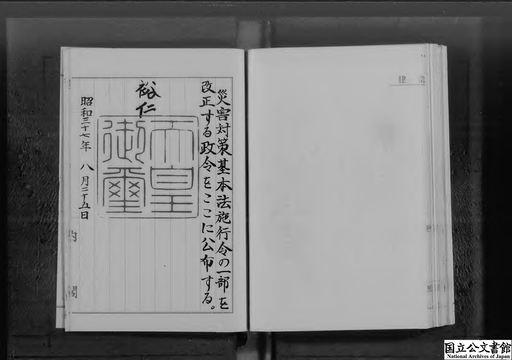 災害対策基本法施行令の一部を
改正する政令をここに公布する。
裕仁
天皇
御璽
昭和三十七年 八月二十五日
内閣
国立公文書館
National Archives of Japan